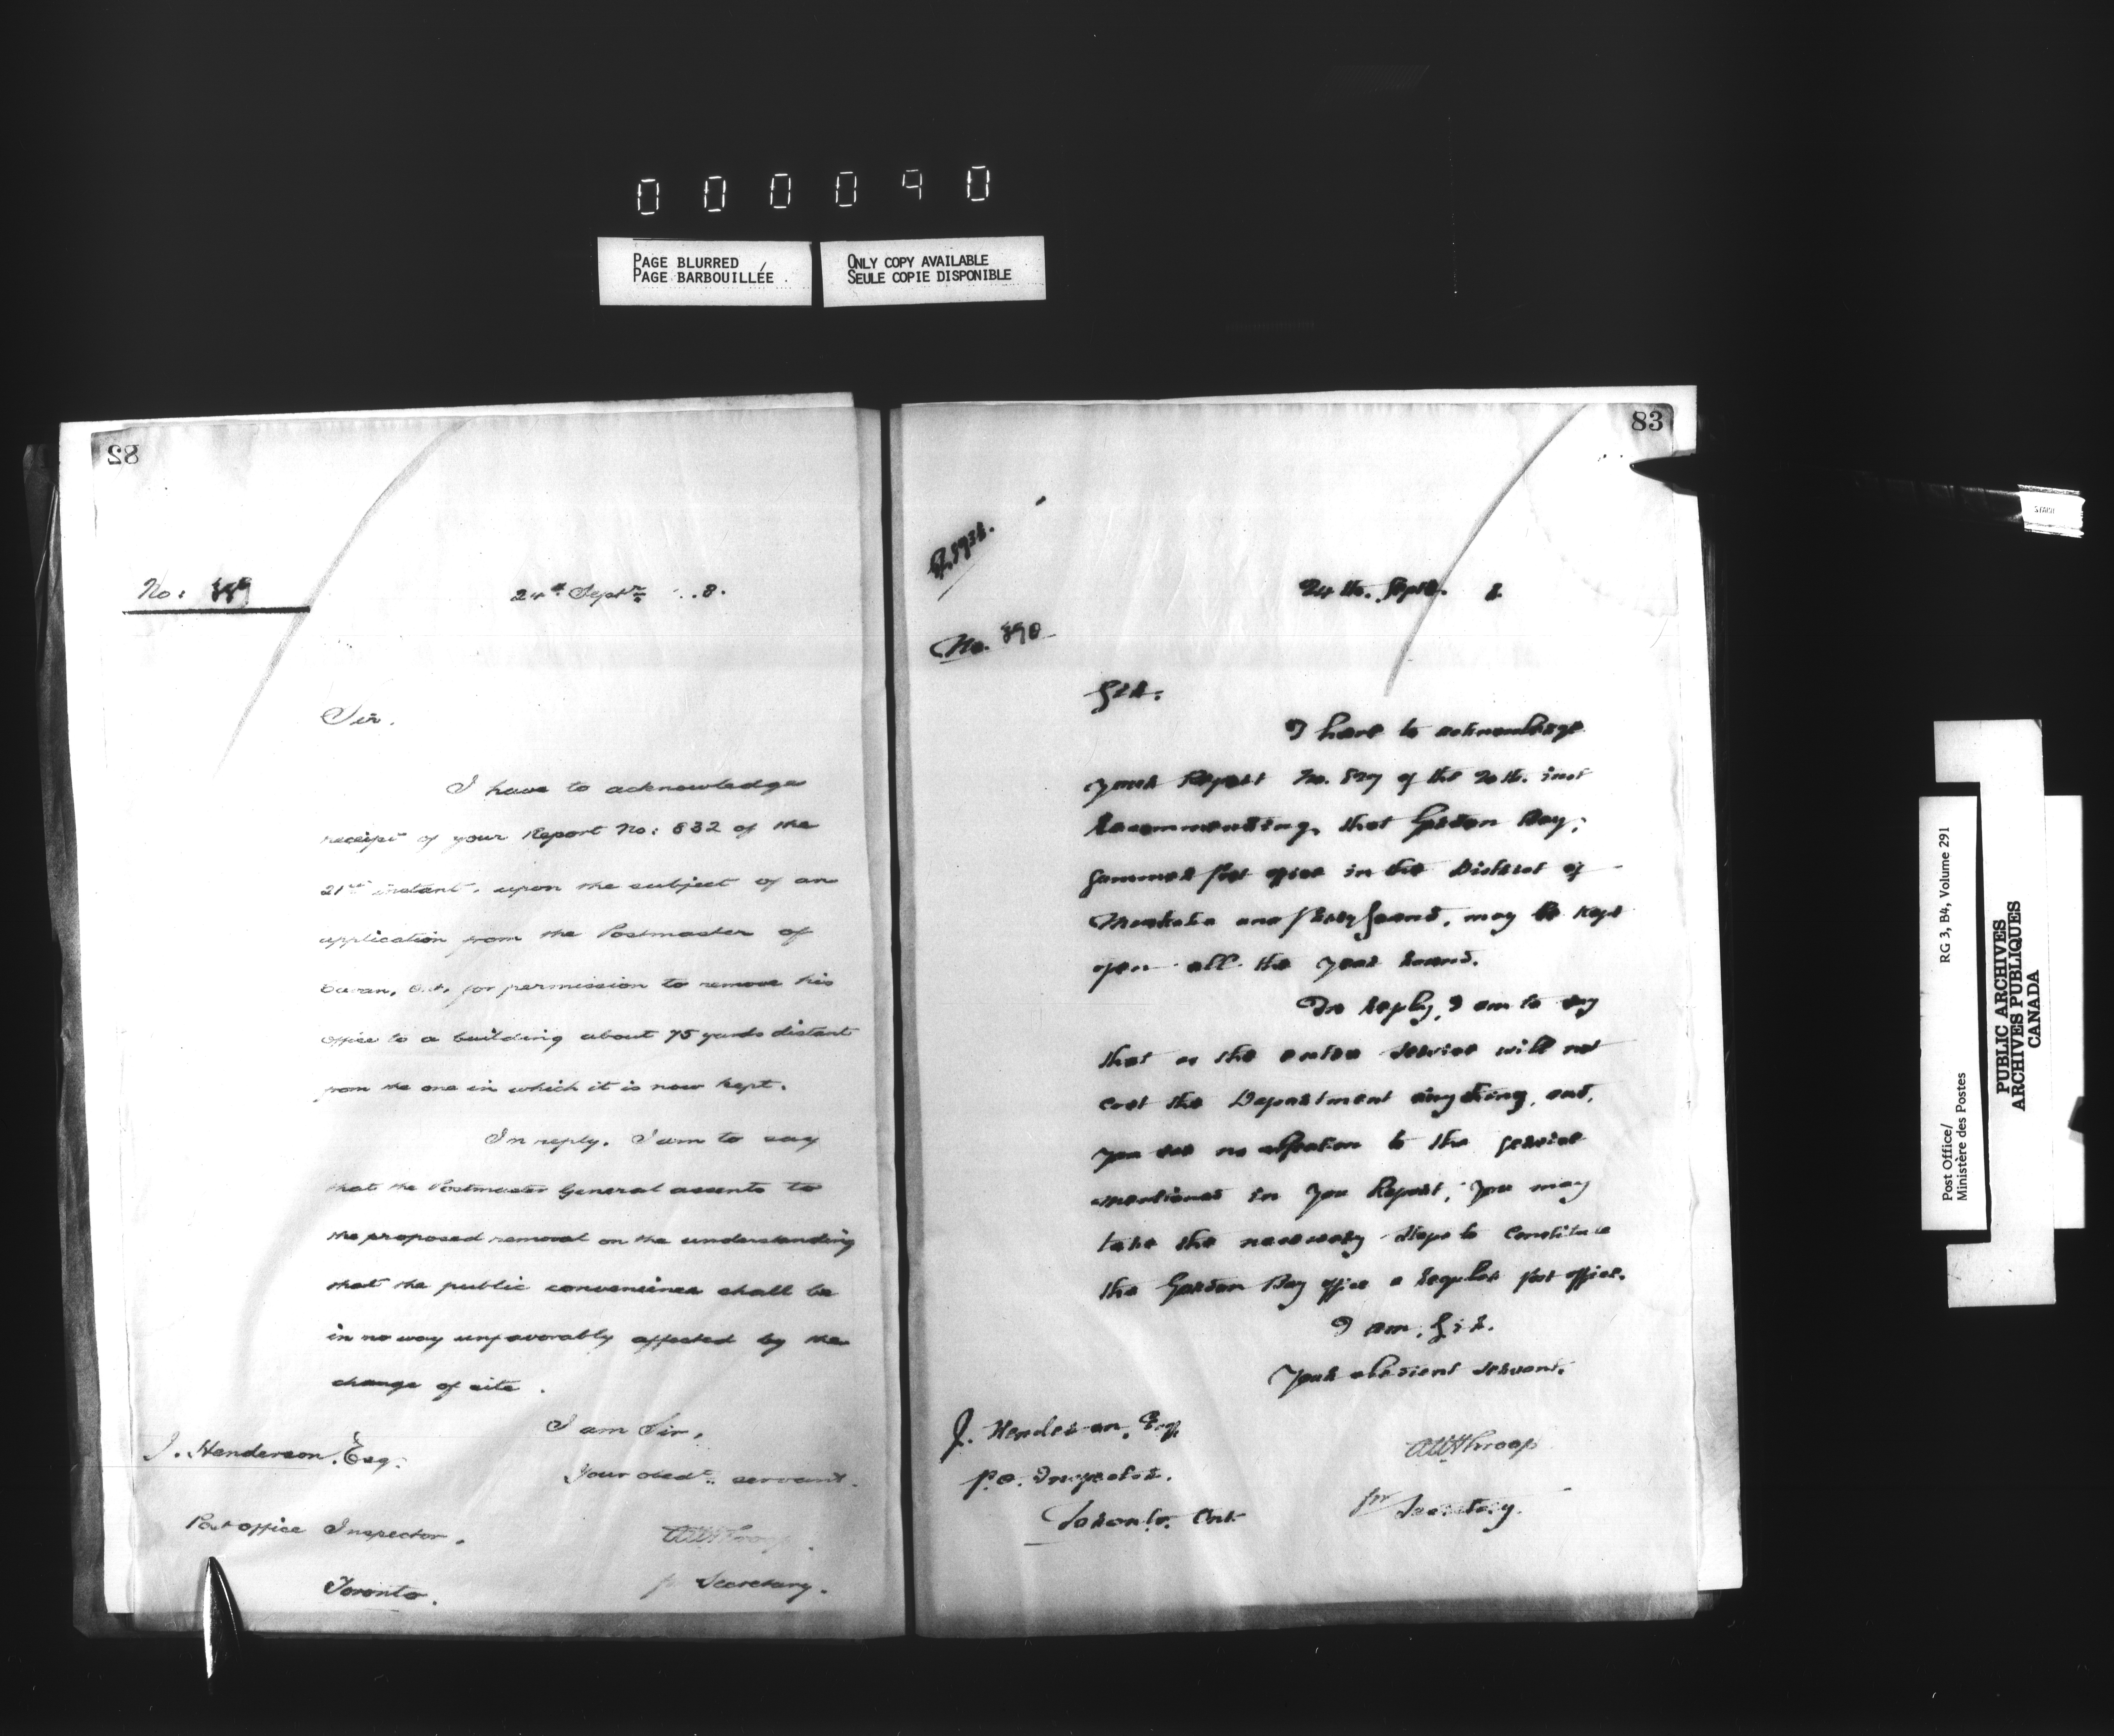 000090
PAGE BLURRED
PAGE BARBOUILLÉE
ONLY COPY AVAILABLE
SEULE COPIE DISPONIBLE
82
No: 389
24th Septr 8.
Sir.
I have to acknowledge
receipt of your Report No: 832 of the
21st instant, upon the subject of an
application from the Postmaster of
Ont, for permission to remove his
office to a building about 75 yards distant
from the one in which it is now kept.
In reply, I am to say
that the Postmaster General assents to
the proposed removal on the understanding
that the public convenience shall be
in no way unfavorably affected by the
change of site.
I am Sir,
Your obedt servant.
J. Henderson, Esq.
Post office Inspector,
Toronto.
fr Secretary.
83
No. 390
24th. Sept. 8
Sir.
I have to acknowledge
your Report No. 827 of the 20th. inst
recommending, that Gordon Bay,
summer post office in the District of
Muskoka and Parry Sound, may be kept
open all the year round.
In reply, I am to say
that as the extra service will not
cost the Department anything, and,
you see no objection to the service
mentioned in you Report, you may
take the necessary steps to constitute
the Gordon Bay office a regular post office.
I am, Sir.
Your obedient servant.
J. Henderson, Esq.
P.O. Inspector.
Toronto. Ont
fr Secretary.
Post Office/
Ministère des Postes
RG 3, B4, Volume 291
PUBLIC ARCHIVES
ARCHIVES PUBLIQUES
CANADA